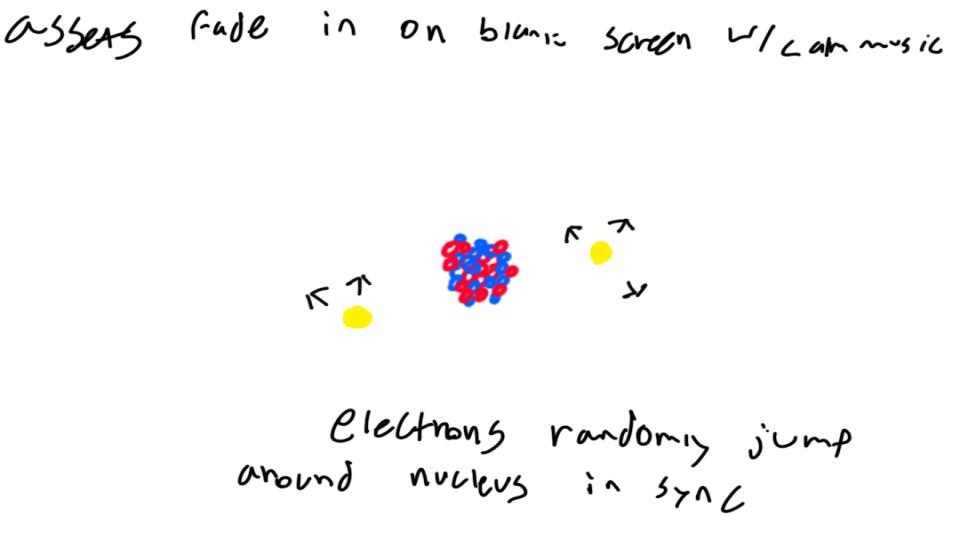 assets fade in on blank screen w/calm music
electrons randomly jump
around nucleus in sync